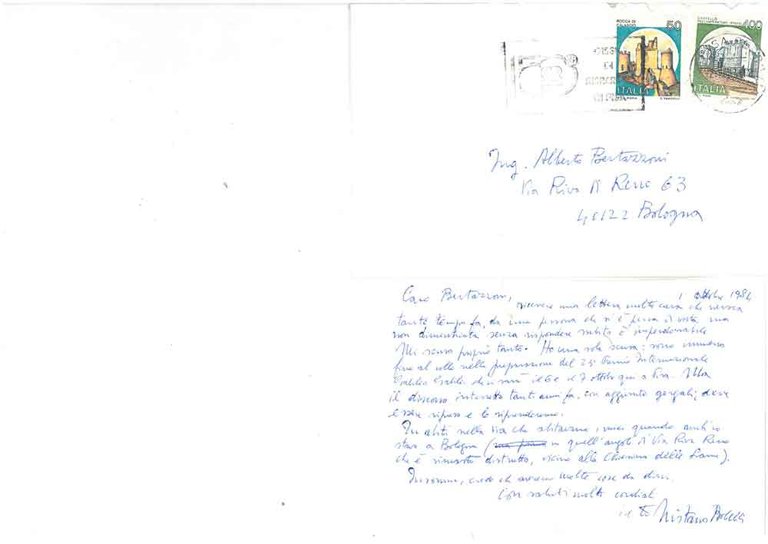 ROCCA DI CALASCIO
50
ITALIA
400
ITALIA
Ing. Alberto Bertazzoni
Via Riva di Reno 63
40122 Bologna
1 Ottobre 1984
Caro Bertazzoni,
ricevere una lettera molto cara che
tanto tempo fa, da una persona che si è persa di vista ma
non dimenticata senza rispondere subito è imperdonabile
Mi scuso proprio tanto. Ho una sola scusa: sono immerso
fino al collo nella preparazione del Premio Internazionale
Galileo Galilei 6 e 7 ottobre qui a Pisa. Ma
il discorso interrotto tanti anni fa, con aggiunte deve
essere ripreso e lo riprenderemo.
abiti nella via che abitavamo, quando anch'io
stavo a Bologna ( in quell'angolo di Via Riva Reno
che è rimasto distrutto, vicino alla Chiesina delle ).
Insomma, credo che avremo molte cose da dirci.
Con saluti molto cordiali
Tristano Bolelli